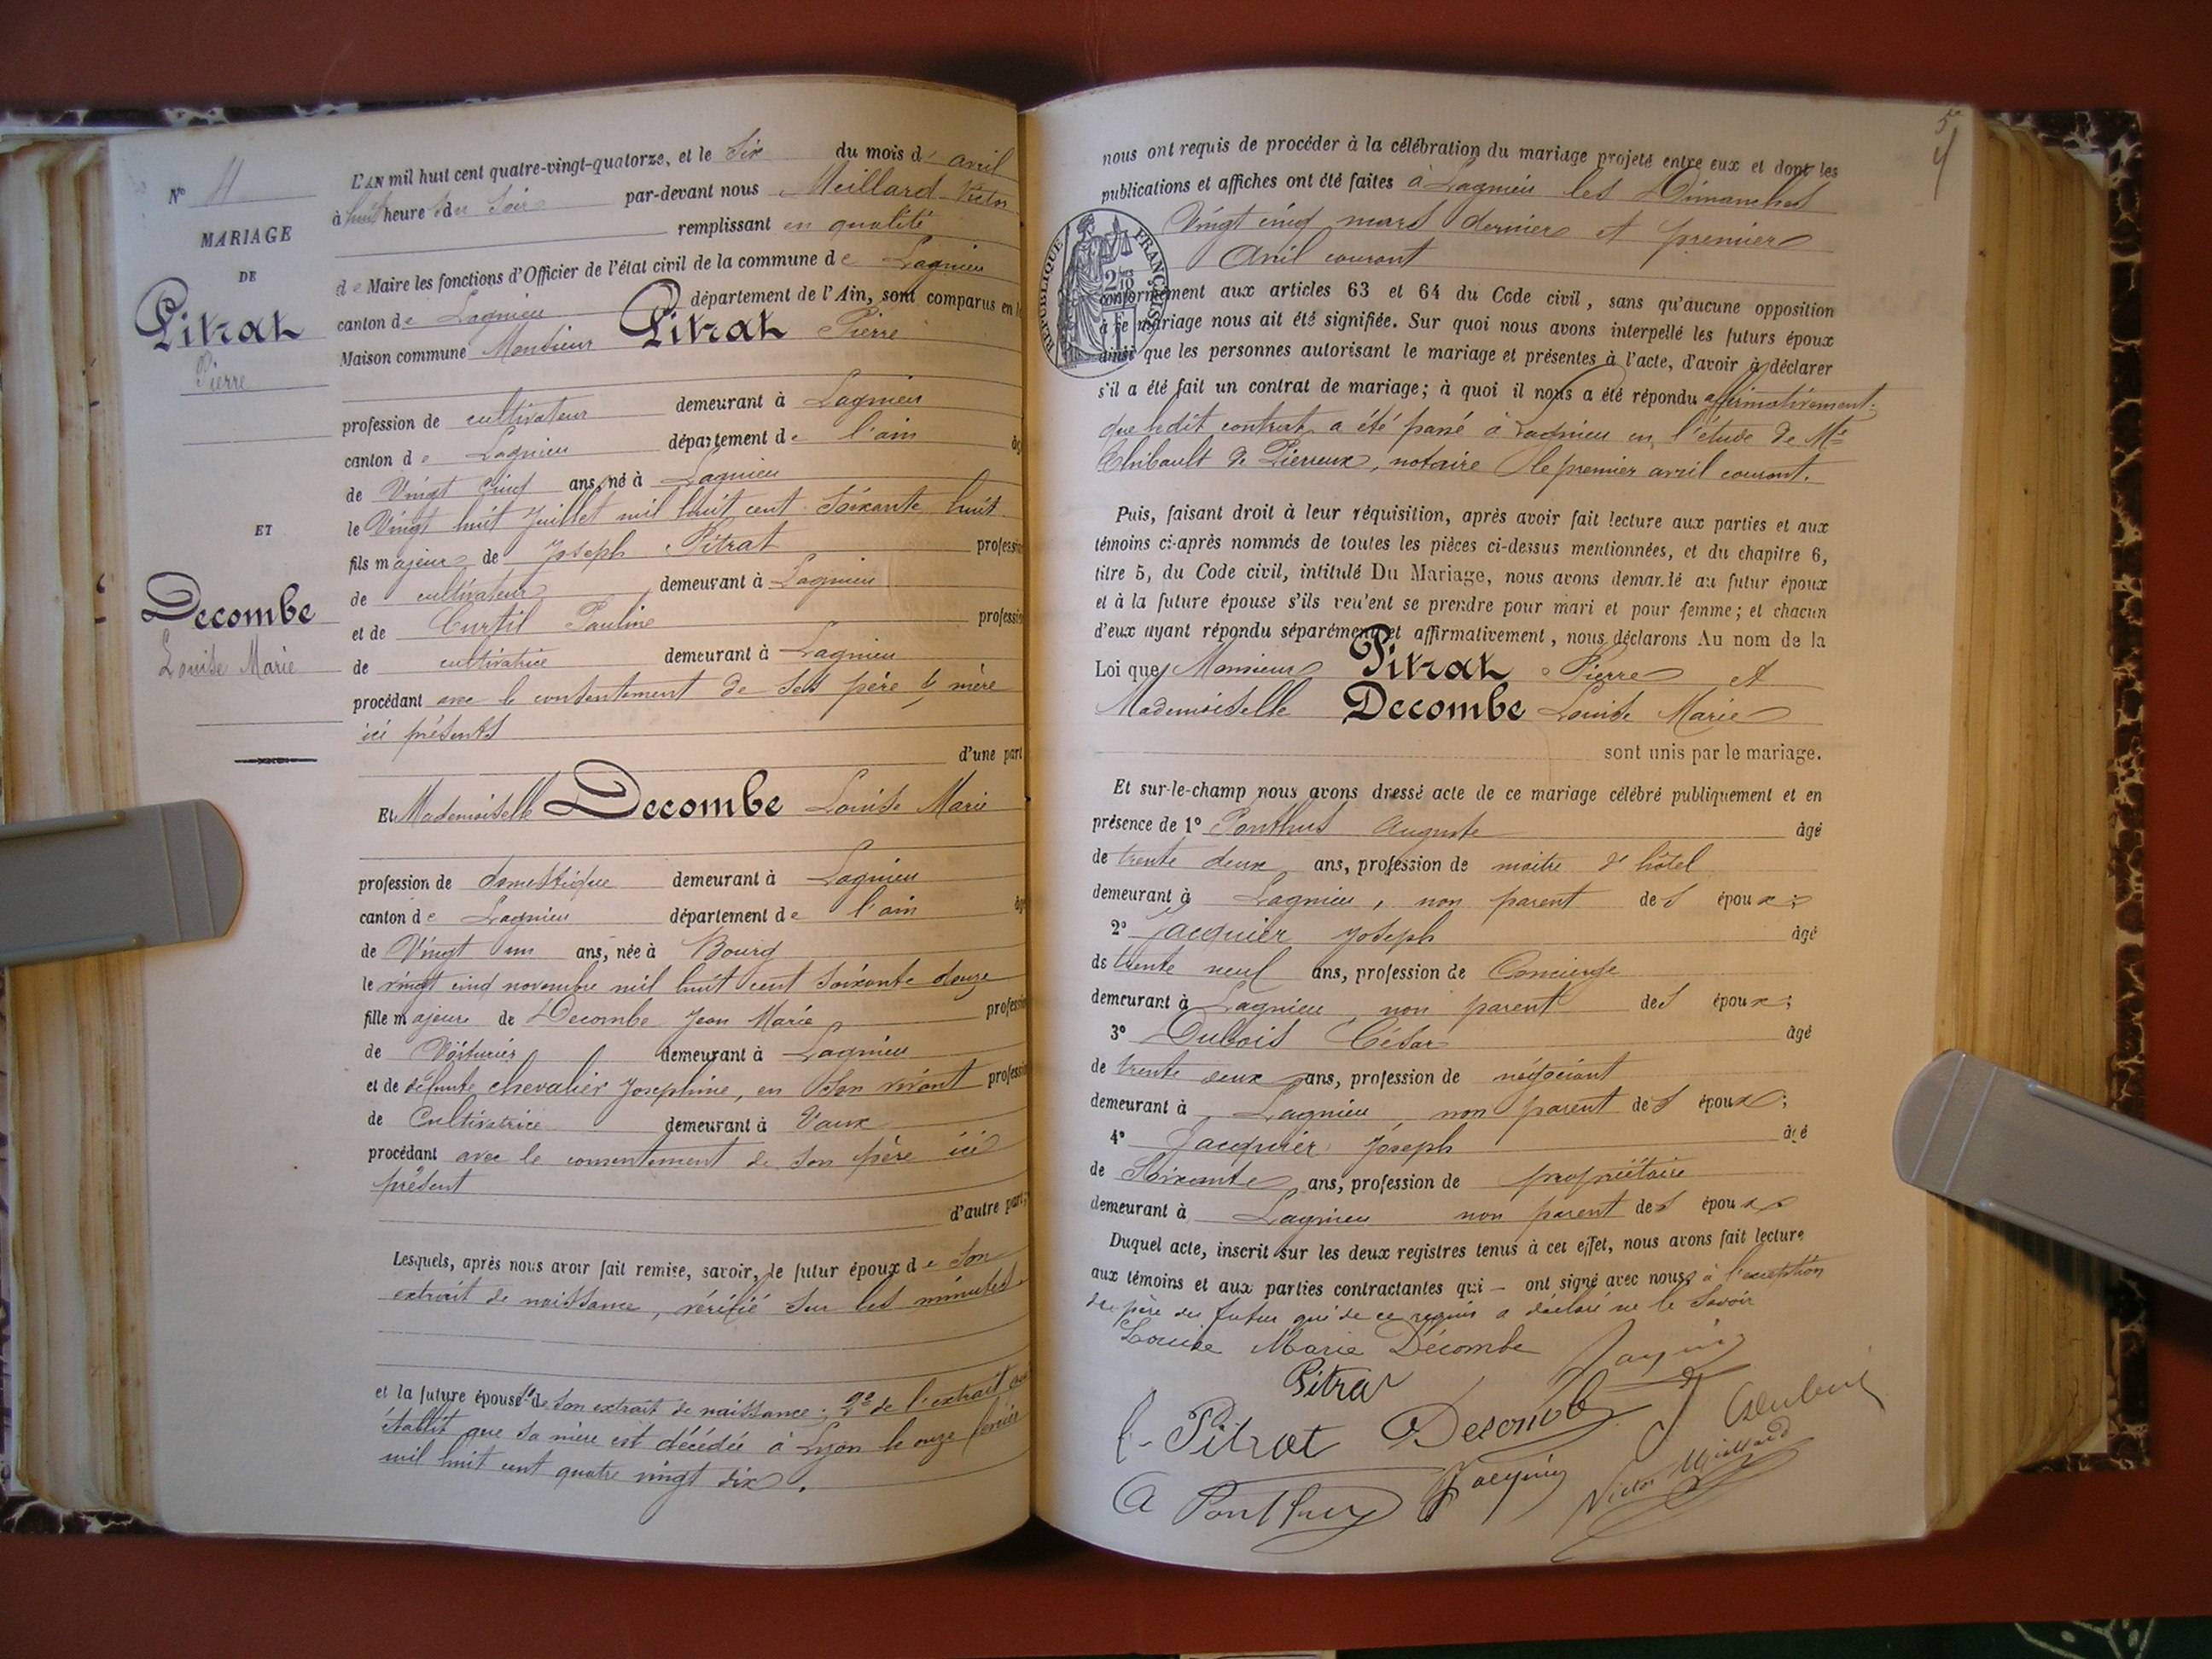 N° 11
MARIAGE
DE
Pitrat
Pierre
ET
Decombe
Louise Marie
L'AN mil huit cent quatre-vingt-quatorze, et le Six du mois d'avril
à huit heures du Soir par-devant nous Meillard Victor
remplissant en qualité
de Maire les fonctions d'Officier de l'état civil de la commune de Lagnieu
canton de Lagnieu département de l'Ain, sont comparus en la
Maison commune Monsieur Pitrat Pierre
profession de cultivateur demeurant à Lagnieu
canton de Lagnieu département de l'ain âgé
de Vingt cinq ans, né à Lagnieu
le Vingt huit Juillet mil huit cent soixante huit
fils majeur de Joseph Pitrat profession
de cultivateur demeurant à Lagnieu
et de Curtil Pauline profession
de cultivatrice demeurant à Lagnieu
procédant avec le consentement de ses père & mère
ici présents
d'une part
Et Mademoiselle Decombe Louise Marie
profession de domestique demeurant à Lagnieu
canton de Lagnieu département de l'ain âgée
de Vingt un ans, née à Bourg
le vingt cinq novembre mil huit cent soixante douze
fille majeure de Decombe Jean Marie profession
de Voiturier demeurant à Lagnieu
et de défunte chevalier Josephine, en son vivant profession
de Cultivatrice demeurant à Vaux
procédant avec le consentement de son père ici
présent
d'autre part;
Lesquels, après nous avoir fait remise, savoir, le futur époux de son
extrait de naissance, vérifié sur les minutes
et la future épouse 1° de son extrait de naissance; 2° de l'extrait qui
établit que sa mère est décédée à Lyon le onze février
mil huit cent quatre vingt dix.
nous ont requis de procéder à la célébration du mariage projeté entre eux et dont les
publications et affiches ont été faites à Lagnieu les Dimanches
Vingt cinq mars dernier et premier
Avril courant
RÉPUBLIQUE FRANÇAISE
conformément aux articles 63 et 64 du Code civil, sans qu'aucune opposition
à ce mariage nous ait été signifiée. Sur quoi nous avons interpellé les futurs époux
ainsi que les personnes autorisant le mariage et présentes à l'acte, d'avoir à déclarer
s'il a été fait un contrat de mariage; à quoi il nous a été répondu affirmativement.
que ledit contrat a été passé à Lagnieu en l'étude de Me
Thibault de Pierreux, notaire le premier avril courant.
Puis, faisant droit à leur réquisition, après avoir fait lecture aux parties et aux
témoins ci-après nommés de toutes les pièces ci-dessus mentionnées, et du chapitre 6,
titre 5, du Code civil, intitulé Du Mariage, nous avons demandé au futur époux
et à la future épouse s'ils veulent se prendre pour mari et pour femme; et chacun
d'eux ayant répondu séparément et affirmativement, nous déclarons Au nom de la
Loi que Monsieur Pitrat Pierre et
Mademoiselle Decombe Louise Marie
sont unis par le mariage.
Et sur-le-champ nous avons dressé acte de ce mariage célébré publiquement et en
présence de 1° Ponthus Auguste âgé
de trente deux ans, profession de maître d'hôtel
demeurant à Lagnieu, non parent des époux;
2° Jacquier Joseph âgé
de trente neuf ans, profession de Concierge
demeurant à Lagnieu, non parent des époux;
3° Dubois César âgé
de trente deux ans, profession de négociant
demeurant à Lagnieu, non parent des époux;
4° Jacquier Joseph âgé
de Soixante ans, profession de propriétaire
demeurant à Lagnieu non parent des époux
Duquel acte, inscrit sur les deux registres tenus à cet effet, nous avons fait lecture
aux témoins et aux parties contractantes qui — ont signé avec nous, à l'exception
du père du futur qui de ce requis a déclaré ne le savoir
Louise Marie Décombe
Pitrat
Pitrat Decombe
A Ponthus Victor Meillard